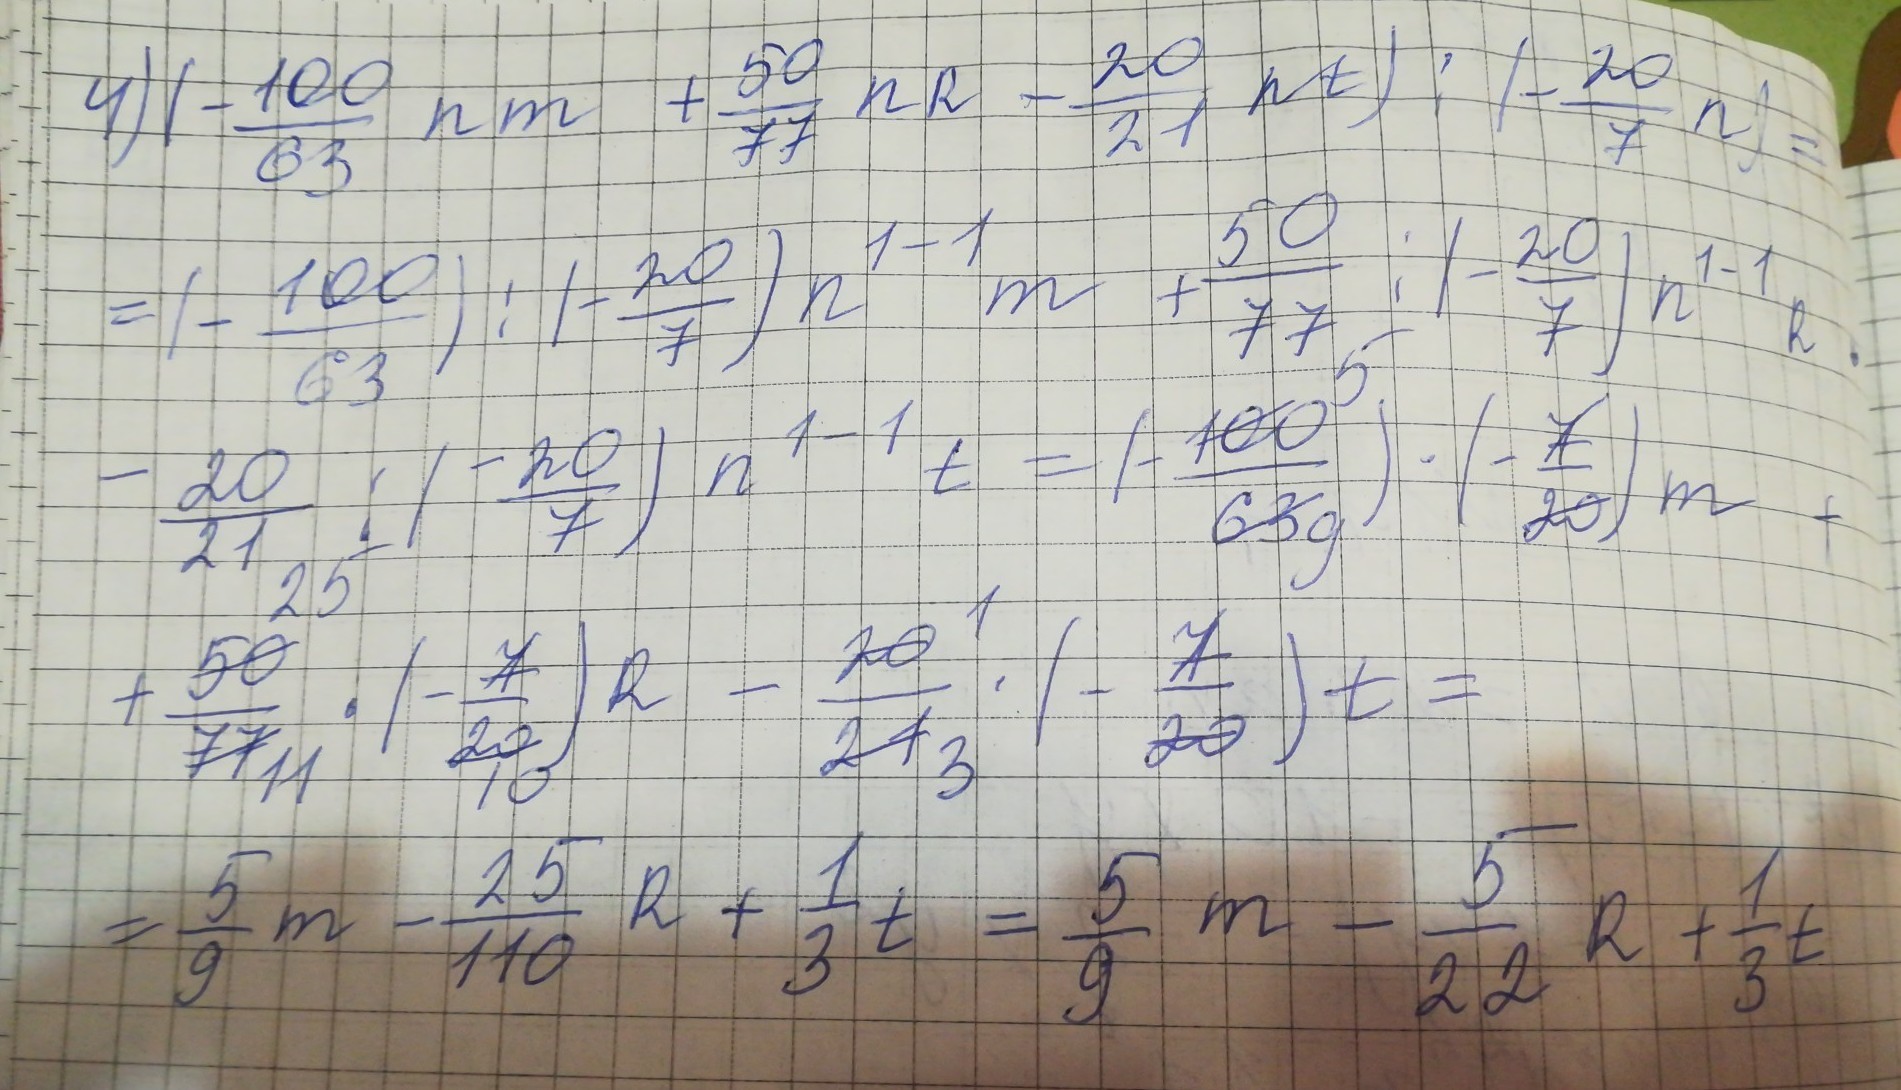 4) (-100/63 nm + 50/77 nk - 20/21 nt) : (-20/7 n) =
= (-100/63) : (-20/7) n^{1-1} m + 50/77 : (-20/7) n^{1-1} k .
- 20/21 : (-20/7) n^{1-1} t = (-100/63) 5 9 · (-7/20) m +
+ 50/77 25 11 · (-7/20) 10 k - 20/21 1 3 · (-7/20) t =
= 5/9 m - 25/110 k + 1/3 t = 5/9 m - 5/22 k + 1/3 t